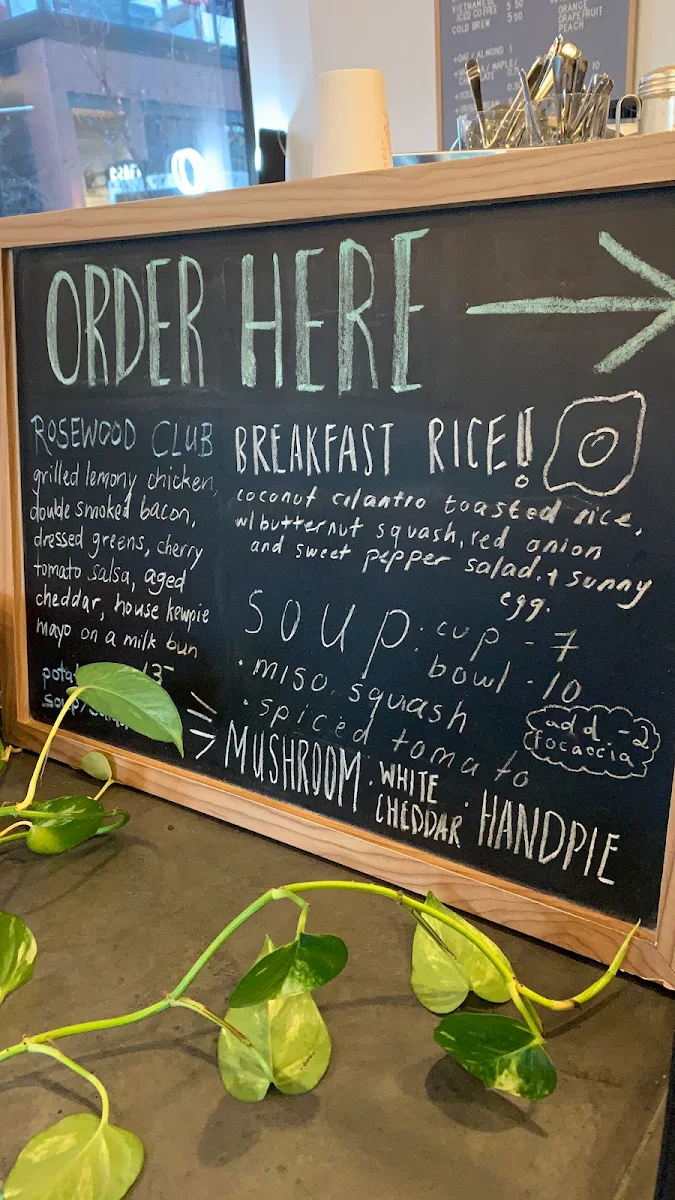 VIETNAMESE
ICED COFFEE 5 50
COLD BREW 5 50
ORANGE
GRAPEFRUIT
PEACH
+OAT/ALMOND 1
MAPLE/
ORDER HERE
ROSEWOOD CLUB
grilled lemony chicken,
double smoked bacon,
dressed greens, cherry
tomato salsa, aged
cheddar, house kewpie
mayo on a milk bun
13
BREAKFAST RICE!!
coconut cilantro toasted rice,
w/ butternut squash, red onion
and sweet pepper salad. + sunny
egg.
SOUP: cup - 7
bowl - 10
• miso squash
• spiced tomato
add - 2
focaccia
MUSHROOM • WHITE CHEDDAR • HANDPIE